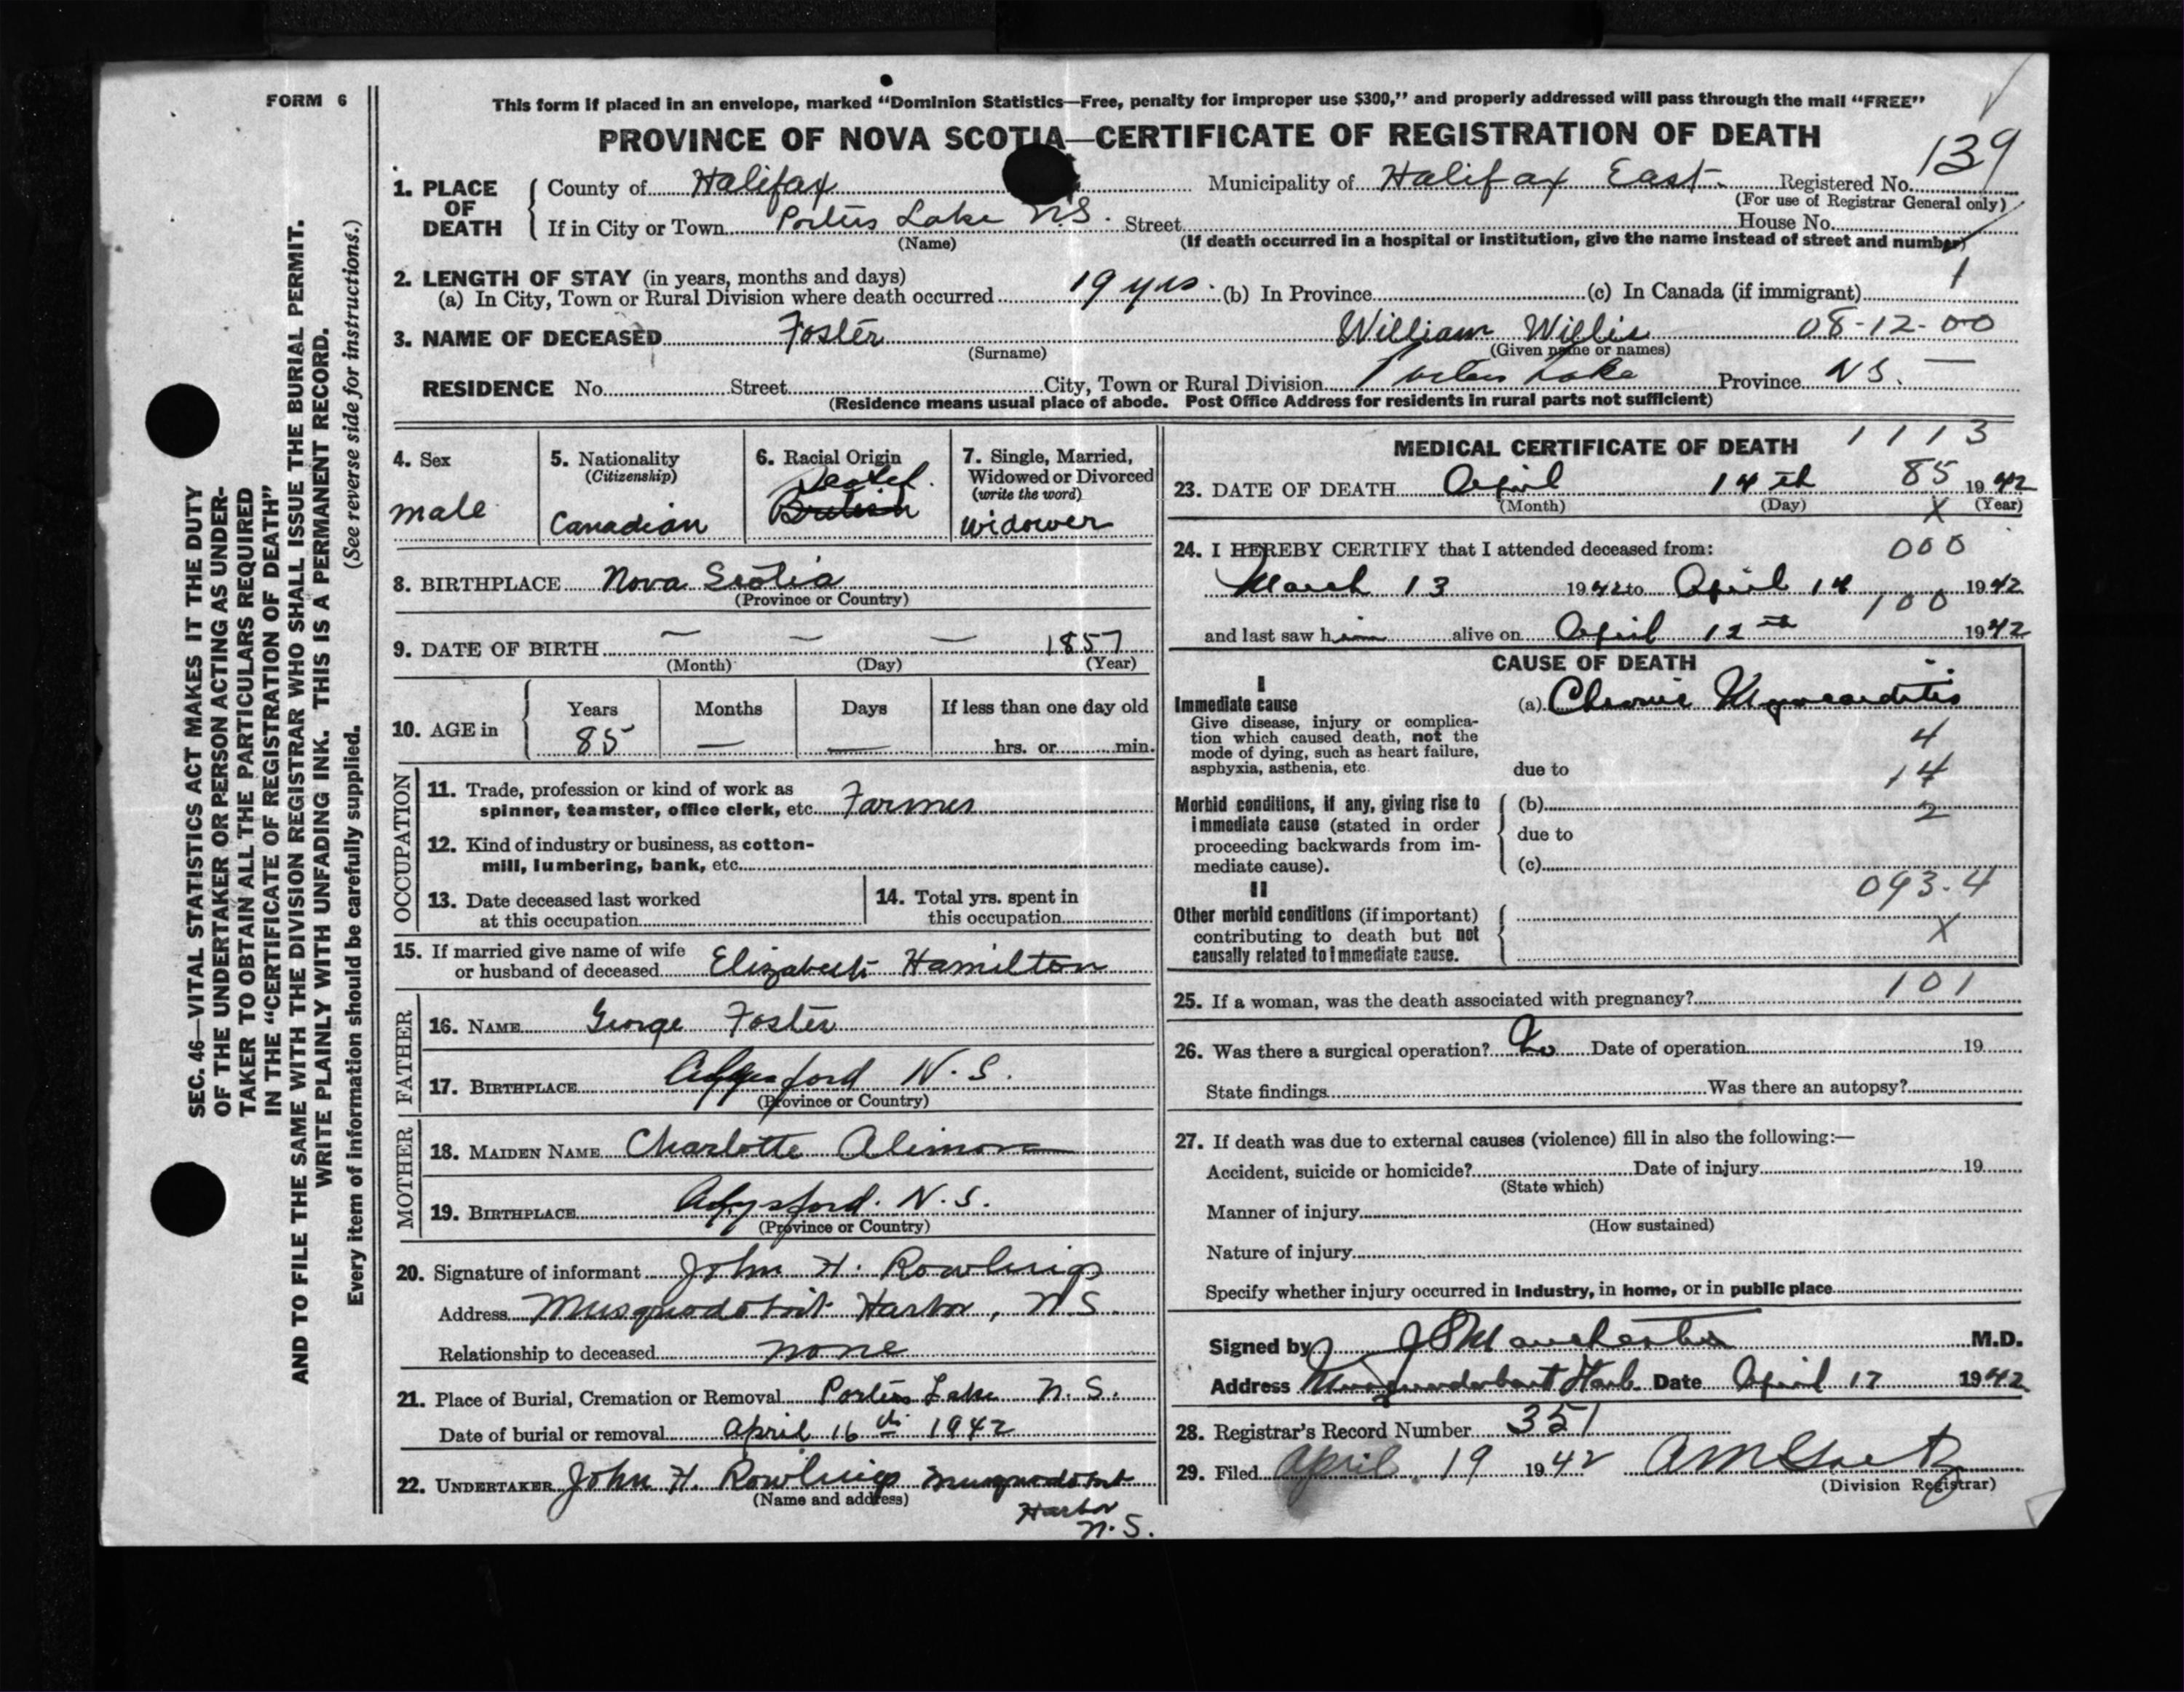 FORM 6
This form if placed in an envelope, marked "Dominion Statistics—Free, penalty for improper use $300," and properly addressed will pass through the mail "FREE"
PROVINCE OF NOVA SCOTIA—CERTIFICATE OF REGISTRATION OF DEATH
139
1. PLACE OF DEATH County of Halifax Municipality of Halifax East. Registered No.
(For use of Registrar General only)
If in City or Town Porters Lake N.S. Street House No.
(Name) (If death occurred in a hospital or institution, give the name instead of street and number)
2. LENGTH OF STAY (in years, months and days) 1
(a) In City, Town or Rural Division where death occurred 19 yrs. (b) In Province (c) In Canada (if immigrant)
3. NAME OF DECEASED Foster William Willis 08-12-00
(Surname) (Given name or names)
RESIDENCE No. Street City, Town or Rural Division Porters Lake Province N S. —
(Residence means usual place of abode. Post Office Address for residents in rural parts not sufficient)
4. Sex
male
5. Nationality
(Citizenship)
Canadian
6. Racial Origin
British
7. Single, Married,
Widowed or Divorced
(write the word)
widower
8. BIRTHPLACE Nova Scotia
(Province or Country)
9. DATE OF BIRTH — — — 1857
(Month) (Day) (Year)
10. AGE in Years Months Days If less than one day old
85 — — hrs. or min.
OCCUPATION
11. Trade, profession or kind of work as
spinner, teamster, office clerk, etc. Farmer
12. Kind of industry or business, as cotton-
mill, lumbering, bank, etc.
13. Date deceased last worked
at this occupation
14. Total yrs. spent in
this occupation
15. If married give name of wife
or husband of deceased Elizabeth Hamilton
FATHER
16. NAME George Foster
17. BIRTHPLACE N.S.
(Province or Country)
MOTHER
18. MAIDEN NAME Charlotte
19. BIRTHPLACE N.S.
(Province or Country)
20. Signature of informant John H. Rowlings
Address Musquodoboit Harbor, N S
Relationship to deceased none
21. Place of Burial, Cremation or Removal Porters Lake N.S.
Date of burial or removal April 16th 1942
22. UNDERTAKER John H. Rowlings Musquodoboit
(Name and address) Harbor
N.S.
1113
MEDICAL CERTIFICATE OF DEATH
85
23. DATE OF DEATH April 14th 1942
(Month) (Day) X (Year)
24. I HEREBY CERTIFY that I attended deceased from: 000
March 13 1942 to April 14 1942
100
and last saw him alive on April 12th 1942
CAUSE OF DEATH
I
Immediate cause (a) Chronic Myocarditis
Give disease, injury or complica-
tion which caused death, not the
mode of dying, such as heart failure,
asphyxia, asthenia, etc. due to
4
14
2
Morbid conditions, if any, giving rise to (b)
immediate cause (stated in order due to
proceeding backwards from im-
mediate cause). (c)
093.4
II
Other morbid conditions (if important)
contributing to death but not X
causally related to immediate cause.
25. If a woman, was the death associated with pregnancy? 101
26. Was there a surgical operation? No Date of operation 19
State findings Was there an autopsy?
27. If death was due to external causes (violence) fill in also the following:—
Accident, suicide or homicide? Date of injury 19
(State which)
Manner of injury
(How sustained)
Nature of injury
Specify whether injury occurred in industry, in home, or in public place
Signed by Manchester M.D.
Address Harb. Date April 17 1942
28. Registrar's Record Number 351
29. Filed April 19 1942
(Division Registrar)
SEC. 46—VITAL STATISTICS ACT MAKES IT THE DUTY
OF THE UNDERTAKER OR PERSON ACTING AS UNDER-
TAKER TO OBTAIN ALL THE PARTICULARS REQUIRED
IN THE "CERTIFICATE OF REGISTRATION OF DEATH"
AND TO FILE THE SAME WITH THE DIVISION REGISTRAR WHO SHALL ISSUE THE BURIAL PERMIT.
WRITE PLAINLY WITH UNFADING INK. THIS IS A PERMANENT RECORD.
Every item of information should be carefully supplied. (See reverse side for instructions.)